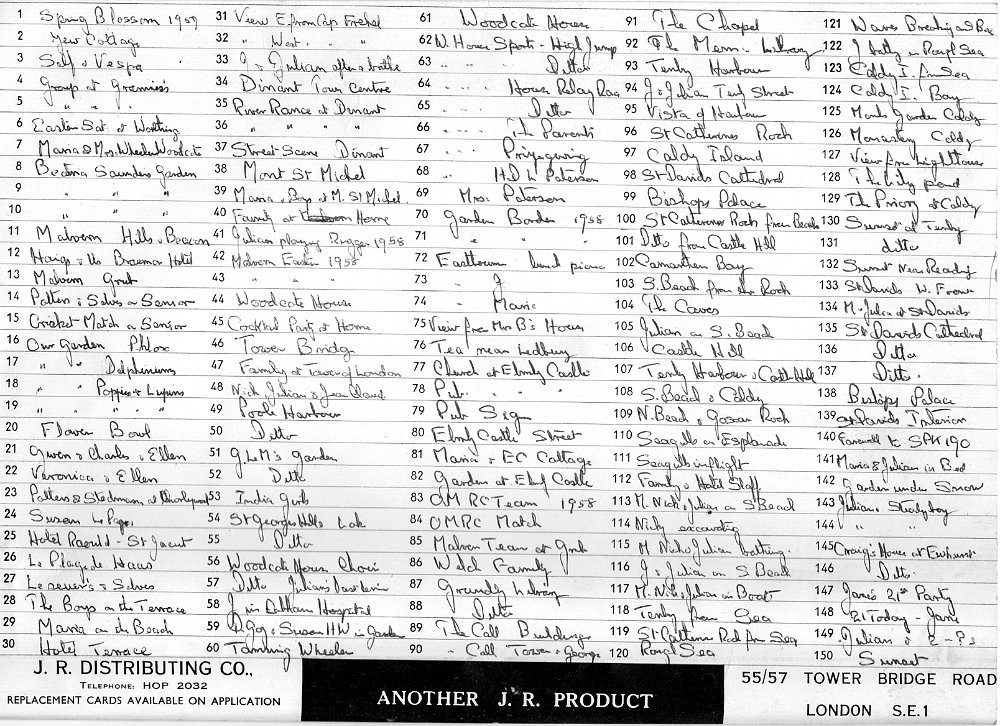 1 Spring Blossom 1959
2 Yew Cottage
3 Self & Vespa
4 Group at Grannies
5 " " "
6 Easter Sat. at Worthing
7 Maria & Mrs. Wheeler Woodcote
8 Bedina Saunders Garden
9 " " "
10 " " "
11 Malvern Hills & Beacon
12 Haigs & Us Braemar Hotel
13 Malvern Group
14 Patten & Selves on Sensor
15 Cricket Match on Sensor
16 Our Garden Phlox
17 " " Delphiniums
18 " " Poppies & Lupins
19 " " " "
20 Flower Bowl
21 Gwen & Charles & Ellen
22 Veronica & Ellen
23 Pattens & Stedmans at
24 Susan Le Page
25 Hotel Raould - St Jacut
26 La Plage de Haas
27 Leseuer's & Selves
28 The Boys on the Terrace
29 Maria on the Beach
30 Hotel Terrace
31 View E from Cap Frehel
32 " West " "
33 J & Julian after a bathe
34 Dinant Town Centre
35 River Rance at Dinant
36 " " " "
37 Street Scene Dinant
38 Mont St Michel
39 Maria & Boys at M. St Michel
40 Family at Home
41 Julian playing Rugger 1958
42 Malvern Easter 1958
43 " " "
44 Woodcote House
45 Cocktail Party at Home
46 Tower Bridge
47 Family at Tower of London
48 Nick, Julian & Jean Claud
49 Poole Harbour
50 Ditto
51 G & M's garden
52 Ditto
53 India Girls
54 St Georges Hills Lake
55 Ditto
56 Woodcote House Choir
57 Ditto Julian's last term
58 J in Cobham Hospital
59 & Susan HW in Garden
60 Tanning Wheeler
61 Woodcote House
62 W. House Sports - High Jump
63 " " Ditto
64 " " House Relay Race
65 " " Ditto
66 " " The Parents
67 Prizegiving
68 " H.D.L. Paterson
69 Mrs. Paterson
70 Garden Border 1958
71 " " "
72 Eastbourne lunch picnic
73 " J
74 " Maria
75 View from Mrs B's House
76 Tea near Ledbury
77 Church at Elmly Castle
78 Pub " "
79 Pub Sign
80 Elmly Castle Street
81 Maria & EC Cottage
82 Garden at Elmly Castle
83 OMRC Team 1958
84 OMRC Match
85 Malvern Team at Group
86 Wild Family
87 Grundy Library
88 Ditto
89 The Coll Buildings
90 " Coll Tower & George
91 The Chapel
92 The Mem. Library
93 Tenby Harbour
94 J & Julian Tenby Street
95 Vista of Harbour
96 St Catherines Rock
97 Caldy Island
98 St Davids Cathedral
99 Bishops Palace
100 St Catherines Rock from Beach
101 Ditto from Castle Hill
102 Camarthen Bay
103 S. Beach from the Rock
104 The Caves
105 Julian on S. Beach
106 Castle Hill
107 Tenby Harbour & Castle Hill
108 S. Beach & Caldy
109 N. Beach & Goscar Rock
110 Seagulls on Esplanade
111 Seagulls in flight
112 Family & Hotel Staff
113 M. Nick, Julian on S Beach
114 Nicky excavating
115 M. Nick & Julian bathing
116 J & Julian on S. Beach
117 M. Nick, Julian in Boat
118 Tenby from Sea
119 St Catherines Rock from Sea
120 Rough Sea
121 Waves Breaking on S. Beach
122 J bathing in Rough Sea
123 Caldy I. from Sea
124 Caldy I. Bay
125 Monks garden Caldy
126 Monastery Caldy
127 View from lighthouse
128 The lily pond
129 The Priory at Caldy
130 Sunset at Tenby
131 ditto
132 Sunset Near Reading
133 St Davids W. Front
134 M. Julia at St Davids
135 St Davids Cathedral
136 Ditto
137 Ditto.
138 Bishops Palace
139 St Davids Interior
140 Farewell to SPK 190
141 Maria & Julian in Bed
142 Garden under Snow
143 Julian & Study boy
144 " " "
145 Craig's House at Ewhurst
146 Ditto.
147 Jane's 21st Party
148 21 Today - Jane
149 Julian & E-Ps
150 Sunset
J. R. DISTRIBUTING CO.,
TELEPHONE: HOP 2032
REPLACEMENT CARDS AVAILABLE ON APPLICATION
ANOTHER J. R. PRODUCT
55/57 TOWER BRIDGE ROAD
LONDON S.E.1